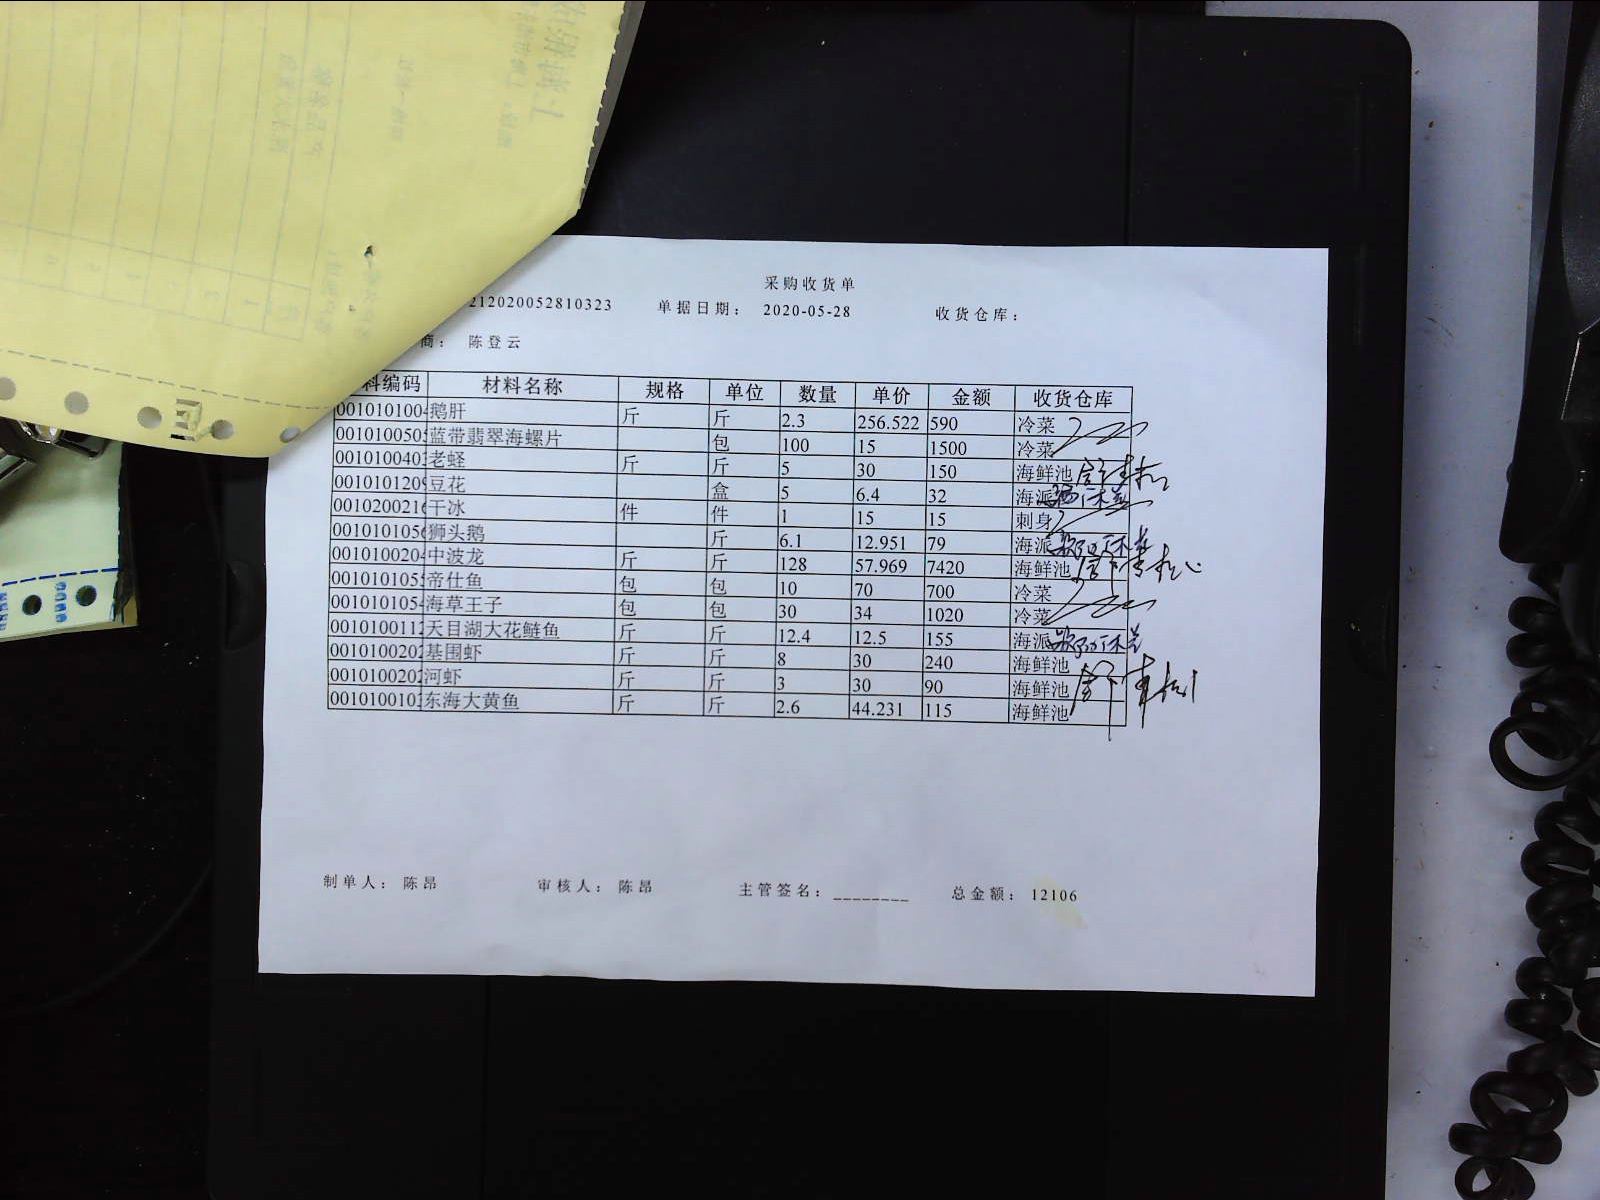 采购收货单
212020052810323 单据日期： 2020-05-28 收货仓库：
商： 陈登云
料编码 材料名称 规格 单位 数量 单价 金额 收货仓库
001010100 鹅肝 斤 斤 2.3 256.522 590 冷菜
0010100505 蓝带翡翠海螺片 包 100 15 1500 冷菜
001010040 老蛏 斤 斤 5 30 150 海鲜池
001010120 豆花 盒 5 6.4 32 海派
001020021 干冰 件 件 1 15 15 刺身
001010105 狮头鹅 斤 6.1 12.951 79 海派
001010020 中波龙 斤 斤 128 57.969 7420 海鲜池
001010105 帝仕鱼 包 包 10 70 700 冷菜
001010105 海草王子 包 包 30 34 1020 冷菜
001010011 天目湖大花鲢鱼 斤 斤 12.4 12.5 155 海派
001010020 基围虾 斤 斤 8 30 240 海鲜池
001010020 河虾 斤 斤 3 30 90 海鲜池
001010010 东海大黄鱼 斤 斤 2.6 44.231 115 海鲜池
制单人： 陈昂 审核人： 陈昂 主管签名：________ 总金额： 12106